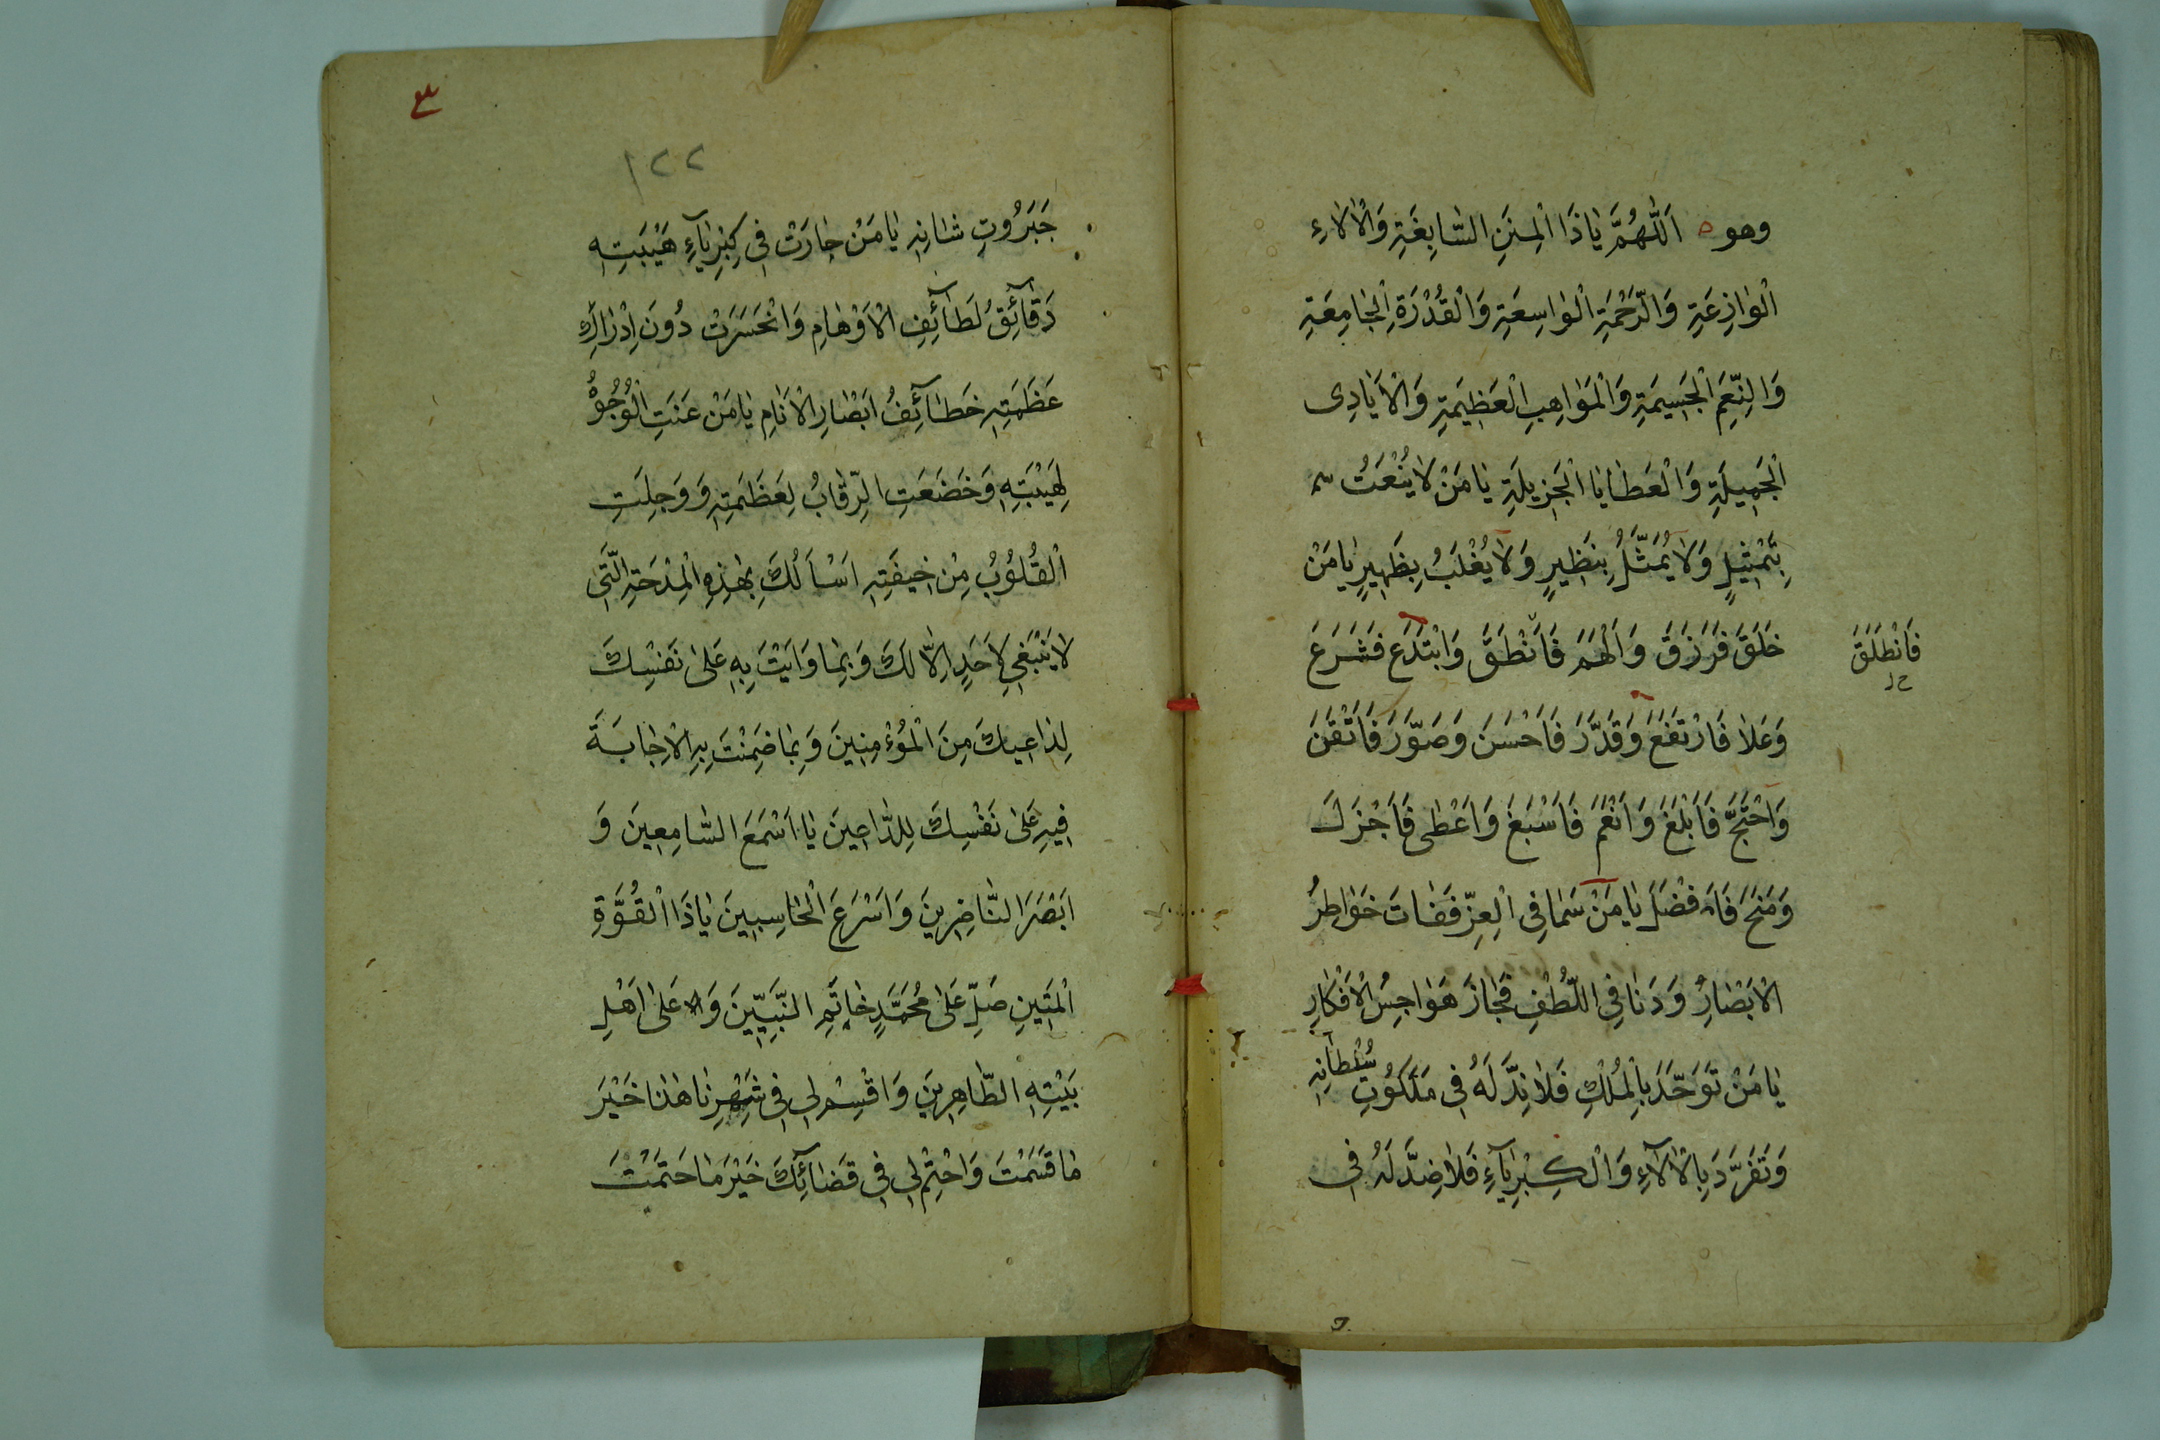 وهو اَللّٰهُمَّ يٰا ذَا الْمِنَنِ السّٰابِغَةِ وَالْاٰلاٰءِ
الْوٰازِعَةِ وَالرَّحْمَةِ الْوٰاسِعَةِ وَالْقُدْرَةِ الْجٰامِعَةِ
وَالنِّعَمِ الْجَسِيمَةِ وَالْمَوٰاهِبِ الْعَظِيمَةِ وَالْاَيٰادِى
الْجَمِيلَةِ وَالْعَطٰايٰا الْجَزِيلَةِ يٰا مَنْ لاٰ يُنْعَتُ
بِتَمْثِيلٍ وَلاٰ يُمَثَّلُ بِنَظِيرٍ وَلاٰ يُغْلَبُ بِظَهِيرٍ يٰا مَنْ
خَلَقَ فَرَزَقَ وَاَلْهَمَ فَاَنْطَقَ وَابْتَدَعَ فَشَرَعَ
فَانْطَلَقَ
خ ل
وَعَلاٰ فَارْتَفَعَ وَقَدَّرَ فَاَحْسَنَ وَصَوَّرَ فَاَتْقَنَ
وَاحْتَجَّ فَاَبْلَغَ وَاَنْعَمَ فَاَسْبَغَ وَاَعْطٰى فَاَجْزَلَ
وَمَنَحَ فَاَفْضَلَ يٰا مَنْ سَمٰا فِى الْعِزِّ فَفٰاتَ خَوٰاطِرُ
الْاَبْصٰارِ وَدَنٰا فِى اللُّطْفِ فَجٰازَ هَوٰاجِسُ الْاَفْكٰارِ
يٰا مَنْ تَوَحَّدَ بِالْمُلْكِ فَلاٰ نِدَّ لَهُ فِى مَلَكُوتِ سُلْطٰانِهِ
وَتَفَرَّدَ بِالْاٰلاٰءِ وَالْكِبْرِيٰآءِ فَلاٰ ضِدَّ لَهُ فِى
٣
١٢٢
جَبَرُوتِ شٰانِهِ يٰا مَنْ حٰارَتْ فِى كِبْرِيٰآءِ هَيْبَتِهِ
دَقٰآئِقُ لَطٰآئِفِ الْاَوْهٰامِ وَانْحَسَرَتْ دُونَ اِدْرٰاكِ
عَظَمَتِهِ خَطٰآئِفُ اَبْصٰارِ الْاَنٰامِ يٰا مَنْ عَنَتِ الْوُجُوهُ
لِهَيْبَتِهِ وَخَضَعَتِ الرِّقٰابُ لِعَظَمَتِهِ وَ وَجِلَتِ
الْقُلُوبُ مِنْ خِيفَتِهِ اَسْاَلُكَ بِهٰذِهِ الْمِدْحَةِ الَّتِى
لاٰ يَنْبَغِى لِاَحَدٍ اِلاّٰ لَكَ وَبِمٰا وَاَيْتَ بِهِ عَلىٰ نَفْسِكَ
لِدٰاعِيكَ مِنَ الْمُؤْمِنِينَ وَبِمٰا ضَمِنْتَ بِهِ الْاِجٰابَةَ
فِيهِ عَلىٰ نَفْسِكَ لِلدّٰاعِينَ يٰا اَسْمَعَ السّٰامِعِينَ وَ
اَبْصَرَ النّٰاضِرِينَ وَاَسْرَعَ الْحٰاسِبِينَ يٰا ذَا الْقُوَّةِ
الْمَتِينِ صَلِّ عَلىٰ مُحَمَّدٍ خٰاتَمِ النَّبِيِّينَ وَ عَلىٰ اَهْلِ
بَيْتِهِ الطّٰاهِرِينَ وَاقْسِمْ لِى فِى شَهْرِنٰا هٰذٰا خَيْرَ
مٰا قَسَمْتَ وَاحْتِمْ لِى فِى قَضٰآئِكَ خَيْرَ مٰا حَتَمْتَ